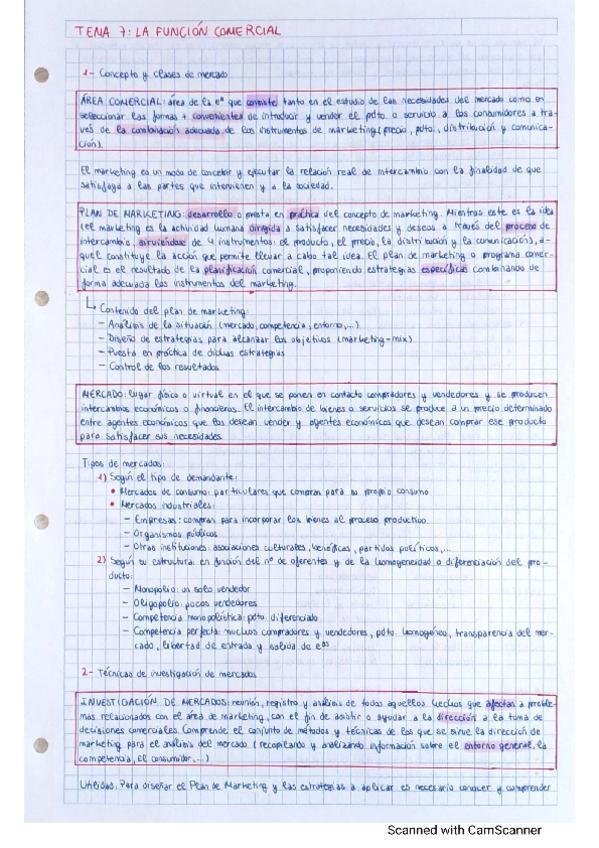 TEMA 7: LA FUNCIÓN COMERCIAL
1- Concepto y clases de mercado
ÁREA COMERCIAL: área de la eª que consiste tanto en el estudio de las necesidades del mercado como en
seleccionar las formas + convenientes de introducir y vender el pdto o servicio a los consumidores a tra-
vés de la combinación adecuada de los instrumentos de marketing (precio, pdto, distribución y comunica-
ción).
El marketing es un modo de concebir y ejecutar la relación real de intercambio con la finalidad de que
satisfaga a las partes que intervienen y a la sociedad.
PLAN DE MARKETING: desarrollo o puesta en práctica del concepto de marketing. Mientras este es la idea
(el marketing es la actividad humana dirigida a satisfacer necesidades y deseos a través del proceso de
intercambio, sirviéndose de 4 instrumentos: el producto, el precio, la distribución y la comunicación), a-
quel constituye la acción que permite llevar a cabo tal idea. El plan de marketing o programa comer-
cial es el resultado de la planificación comercial, proponiendo estrategias específicas combinando de
forma adecuada los instrumentos del marketing.
↳ Contenido del plan de marketing:
- Análisis de la situación (mercado, competencia, entorno,...)
- Diseño de estrategias para alcanzar los objetivos (marketing-mix)
- Puesta en práctica de dichas estrategias
- Control de los resultados
MERCADO: lugar físico o virtual en el que se ponen en contacto compradores y vendedores y se producen
intercambios económicos o financieros. El intercambio de bienes o servicios se produce a un precio determinado
entre agentes económicos que los desean vender y agentes económicos que desean comprar ese producto
para satisfacer sus necesidades.
Tipos de mercados:
1) Según el tipo de demandante:
• Mercados de consumo: particulares que compran para su propio consumo
• Mercados industriales:
- Empresas: compran para incorporar los bienes al proceso productivo.
- Organismos públicos
- Otras instituciones: asociaciones culturales, benéficas, partidos políticos,...
2) Según su estructura: en función del nº de oferentes y de la homogeneidad o diferenciación del pro-
ducto:
- Monopolio: un solo vendedor
- Oligopolio: pocos vendedores
- Competencia monopolística: pdto. diferenciado
- Competencia perfecta: muchos compradores y vendedores, pdto. homogéneo, transparencia del mer-
cado, libertad de entrada y salida de eªs
2- Técnicas de investigación de mercados
INVESTIGACIÓN DE MERCADOS: reunión, registro y análisis de todos aquellos hechos que afectan a proble-
mas relacionados con el área de marketing, con el fin de asistir o ayudar a la dirección a la toma de
decisiones comerciales. Comprende el conjunto de métodos y técnicas de los que se sirve la dirección de
marketing para el análisis del mercado (recopilando y analizando información sobre el entorno general, la
competencia, el consumidor,...)
Utilidad: Para diseñar el Plan de Marketing y las estrategias a aplicar es necesario conocer y comprender
Scanned with CamScanner